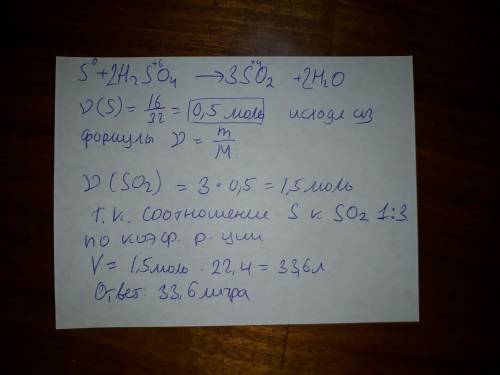 S⁰+2H₂S⁺⁶O₄ → 3S⁺⁴O₂ +2H₂O
ν(S) = 16/32 = 0,5 моль исходя из
формулы ν = m/M.
ν(SO₂) = 3 · 0,5 = 1,5 моль
т.к. соотношение S к SO₂ 1:3
по коэф. р-ции
V = 1,5 моль · 22,4 = 33,6 л.
Ответ: 33,6 литра